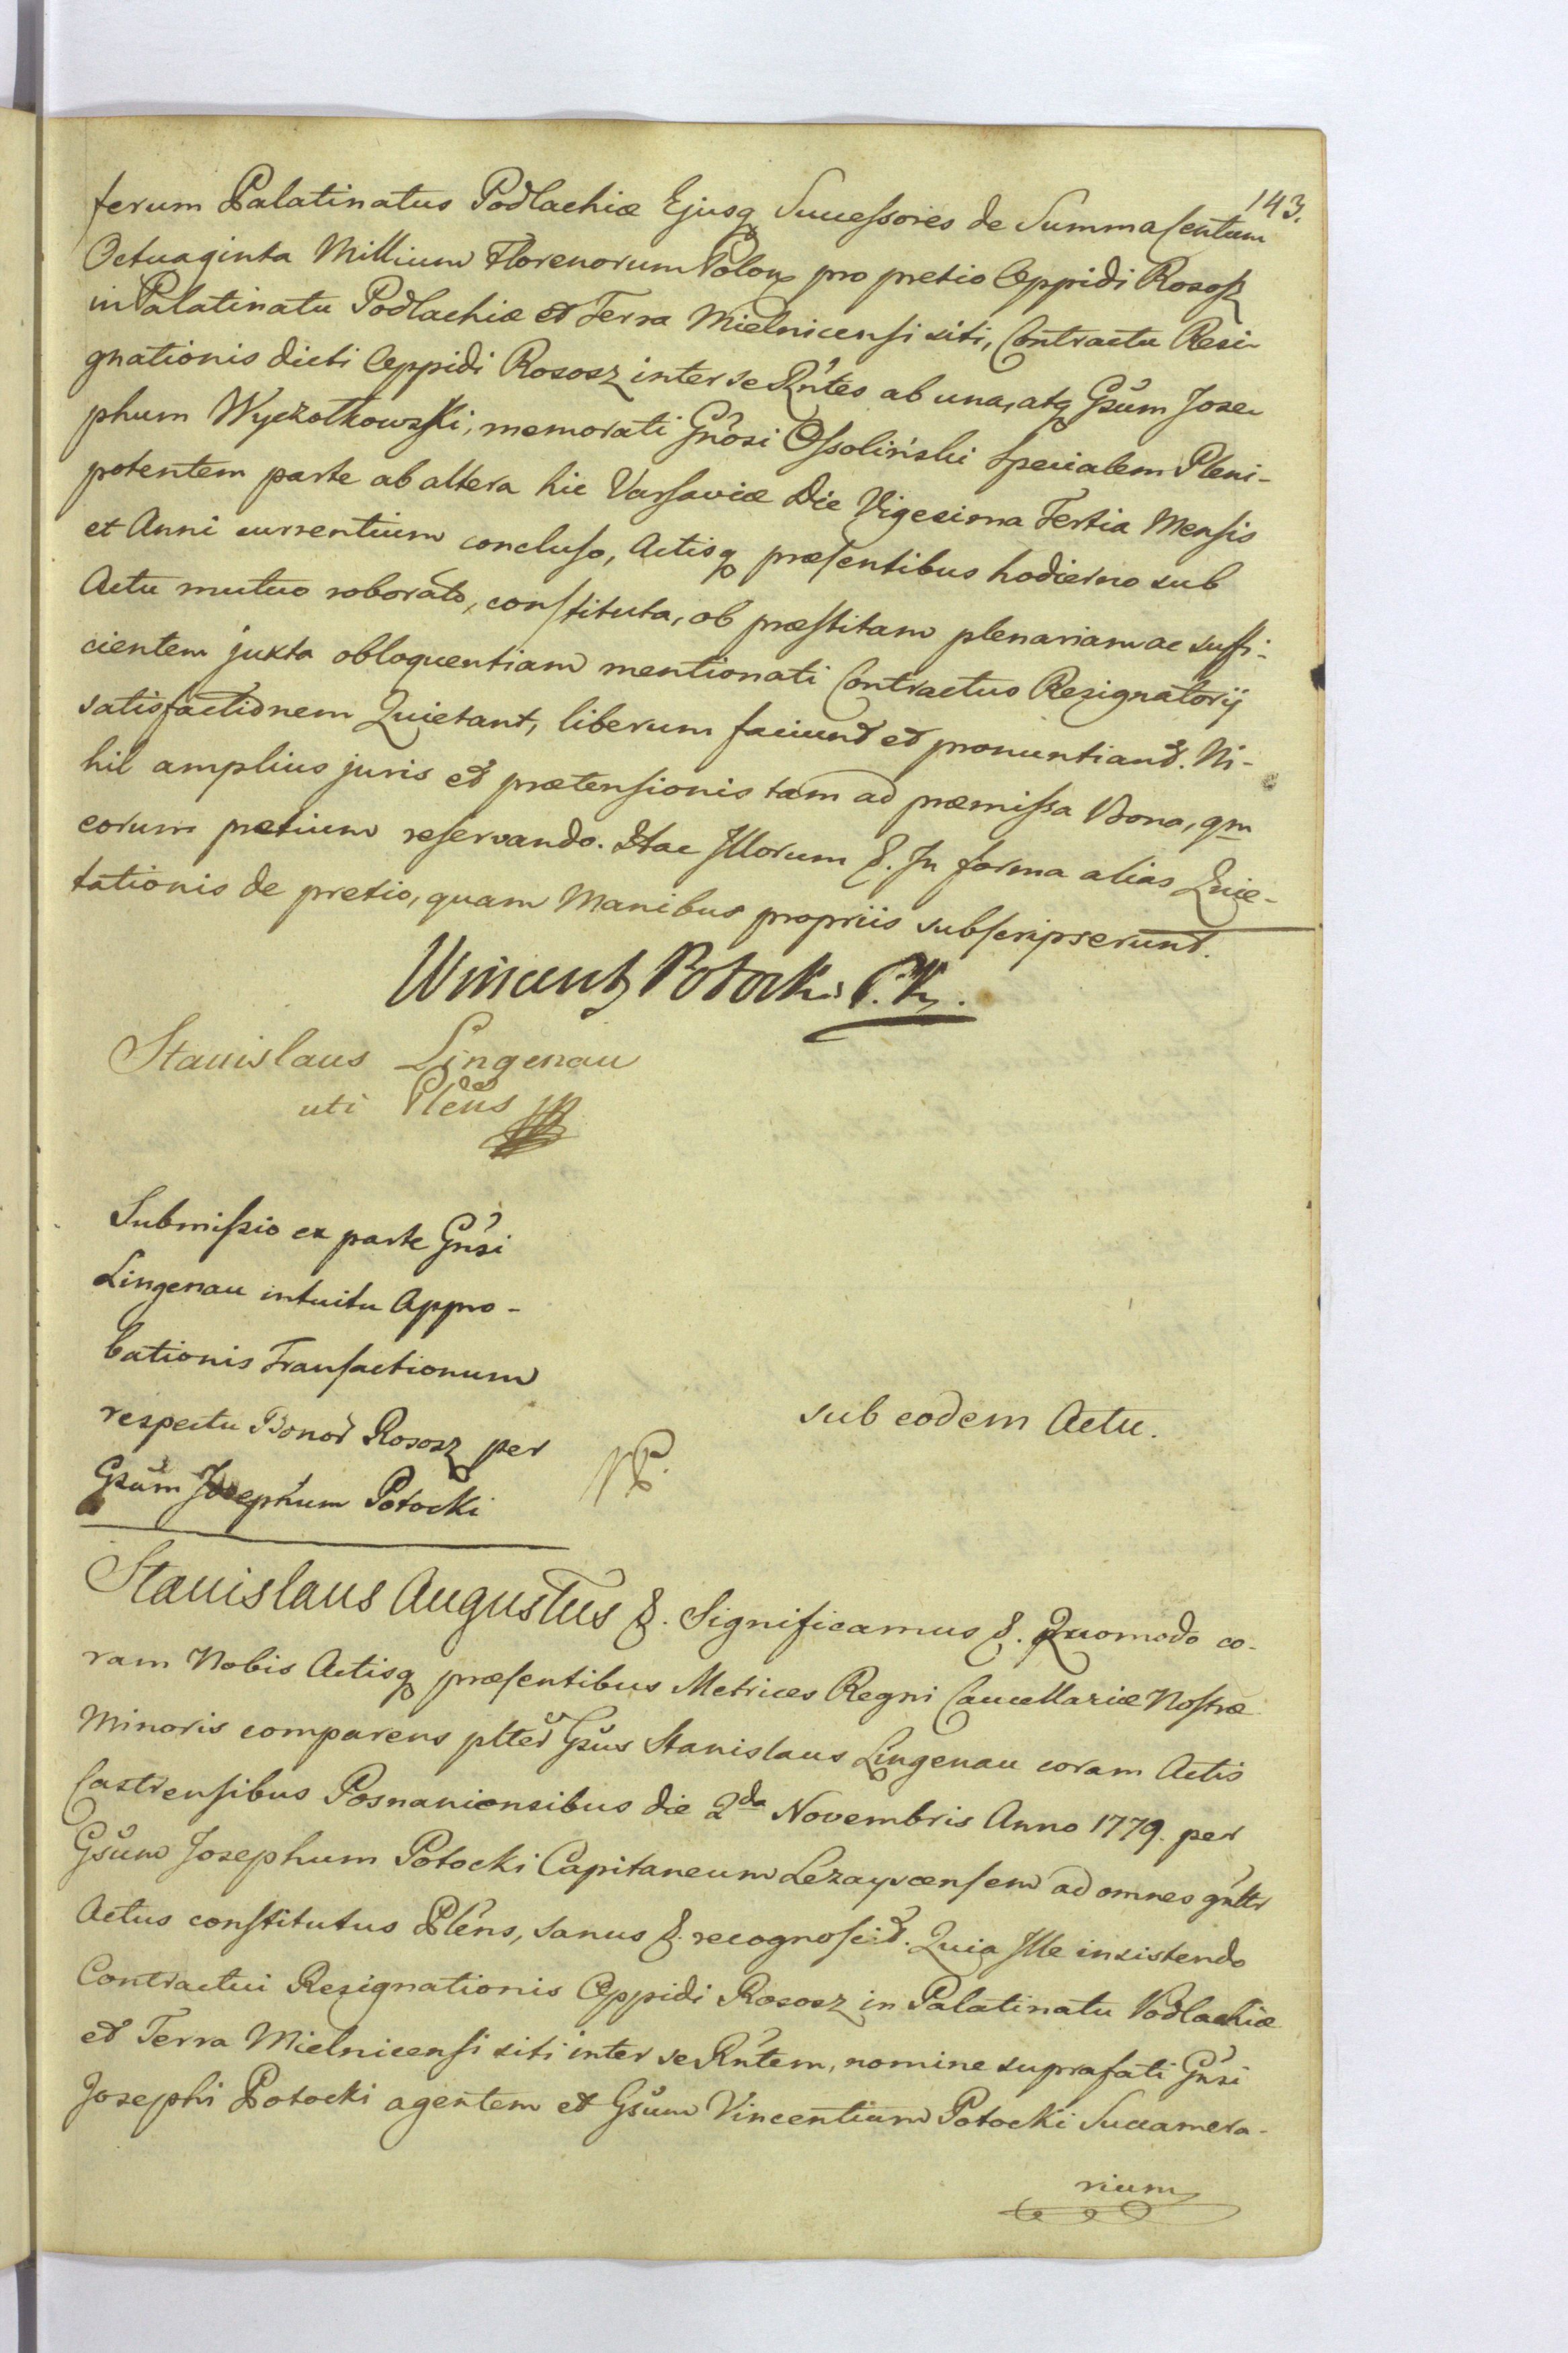 143.
ferum Palatinatus Podlachiæ Ejusq Successores de Summa Centum
Octuaginta Millium Florenorum Polon pro pretio Oppidi Rososz
in Palatinatu Podlachiæ et Terra Mielnicensi siti, Contractu Resi-
gnationis dicti Oppidi Rososz inter se Rntes ab una, atq Gsum Jose-
phum Wyczołkowski, memorati Gnosi Ossoliński Specialem Pleni-
potentem parte ab altera hic Varsaviæ Die Vigesima Tertia Mensis
et Anni currentium concluso, Actisq præsentibus hodierno sub
Actu mutuo roborato, constituta, ob præstitam plenariam ac suffi-
cientem juxta obloquentiam mentionati Contractus Resignatorij
satisfactionem Quietant, liberum faciunt et pronuntiant. Ni-
hil amplius juris et prætensionis tam ad præmissa Bona, qm
eorum pretium reservando. Hac Illorum &. In forma alias Quie-
tationis de pretio, quam Manibus propriis subscripserunt.
Wincenty Potocki P.K.
Stanislaus Lingenau
uti Plens
Submissio ex parte Gnsi
Lingenau intuitu Appro-
bationis Transactionum
respectu Bonor Rososz per
Gsum Josephum Potocki
sub eodem Actu.
Stanislaus Augustus &. Significamus &. Quomodo co-
ram Nobis Actisq præsentibus Metrices Regni Cancellariæ Nostræ
Minoris comparens plter Gsus Stanislaus Lingenau coram Actis
Castrensibus Posnaniensibus die 2da Novembris Anno 1779. per
Gsum Josephum Potocki Capitaneum Leżayscensem ad omnes gnltr
Actus constitutus Plens, sanus &. recognoscit. Quia Ille insistendo
Contractui Resignationis Oppidi Rososz in Palatinatu Podlachiæ
et Terra Mielnicensi siti inter se Rntem, nomine suprafati Gnsi
Josephi Potocki agentem et Gsum Vincentium Potocki Succamera-
rium